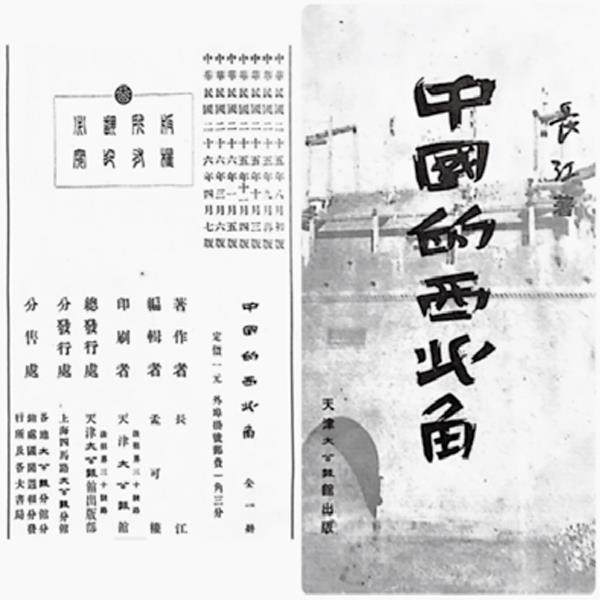 長江著
中國的西北角
天津大公報館出版
中華民國二十五年八月初版
中華民國二十五年九月再版
中華民國二十五年十月三版
中華民國二十五年十一月四版
中華民國二十六年一月五版
中華民國二十六年三月六版
中華民國二十六年四月七版
版權
所有
翻印
必究
中國的西北角 全一冊
定價一元 外埠掛號郵費一角三分
著作者 長江
編輯者 孟可
印刷者 法租界三十號路
天津大公報館
總發行處 法租界三十號路
天津大公報館出版部
分發行處 上海四馬路大公報分館
分售處 各地大公報分館分
銷處國聞週報分發
行所及各大書局